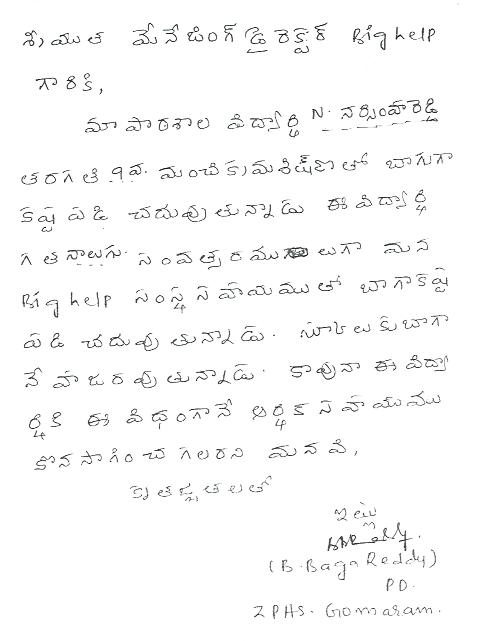 శ్రీయుత మేనేజింగ్ డైరెక్టర్ Big help
గారికి,
మా పాఠశాల విద్యార్థి N. నర్సింహారెడ్డి
తరగతి 9వ. మంచి క్రమశిక్షణతో బాగుగా
కష్టపడి చదువుతున్నాడు ఈ విద్యార్థి
గత నాలుగు సంవత్సరములుగా మన
Big help సంస్థ సహాయముతో బాగా కష్ట
పడి చదువుతున్నాడు. స్కూలుకు బాగా
నే హాజరవుతున్నాడు. కావునా ఈ విద్యా
ర్థికి ఈ విధంగానే ఆర్థిక సహాయము
కొనసాగించగలరని మనవి,
కృతజ్ఞతలతో
ఇట్లు
(B. Baga Reddy)
PD.
ZPHS. Gomaram.